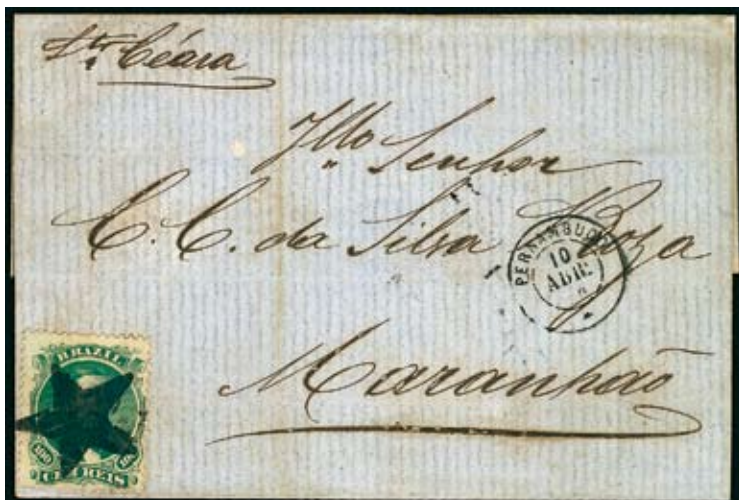 Ceára
Illo Senhor
C. C. da Silva Roza
PERNAMBUCO
10
ABR.
Maranhão
BRAZIL
100
CEM REIS